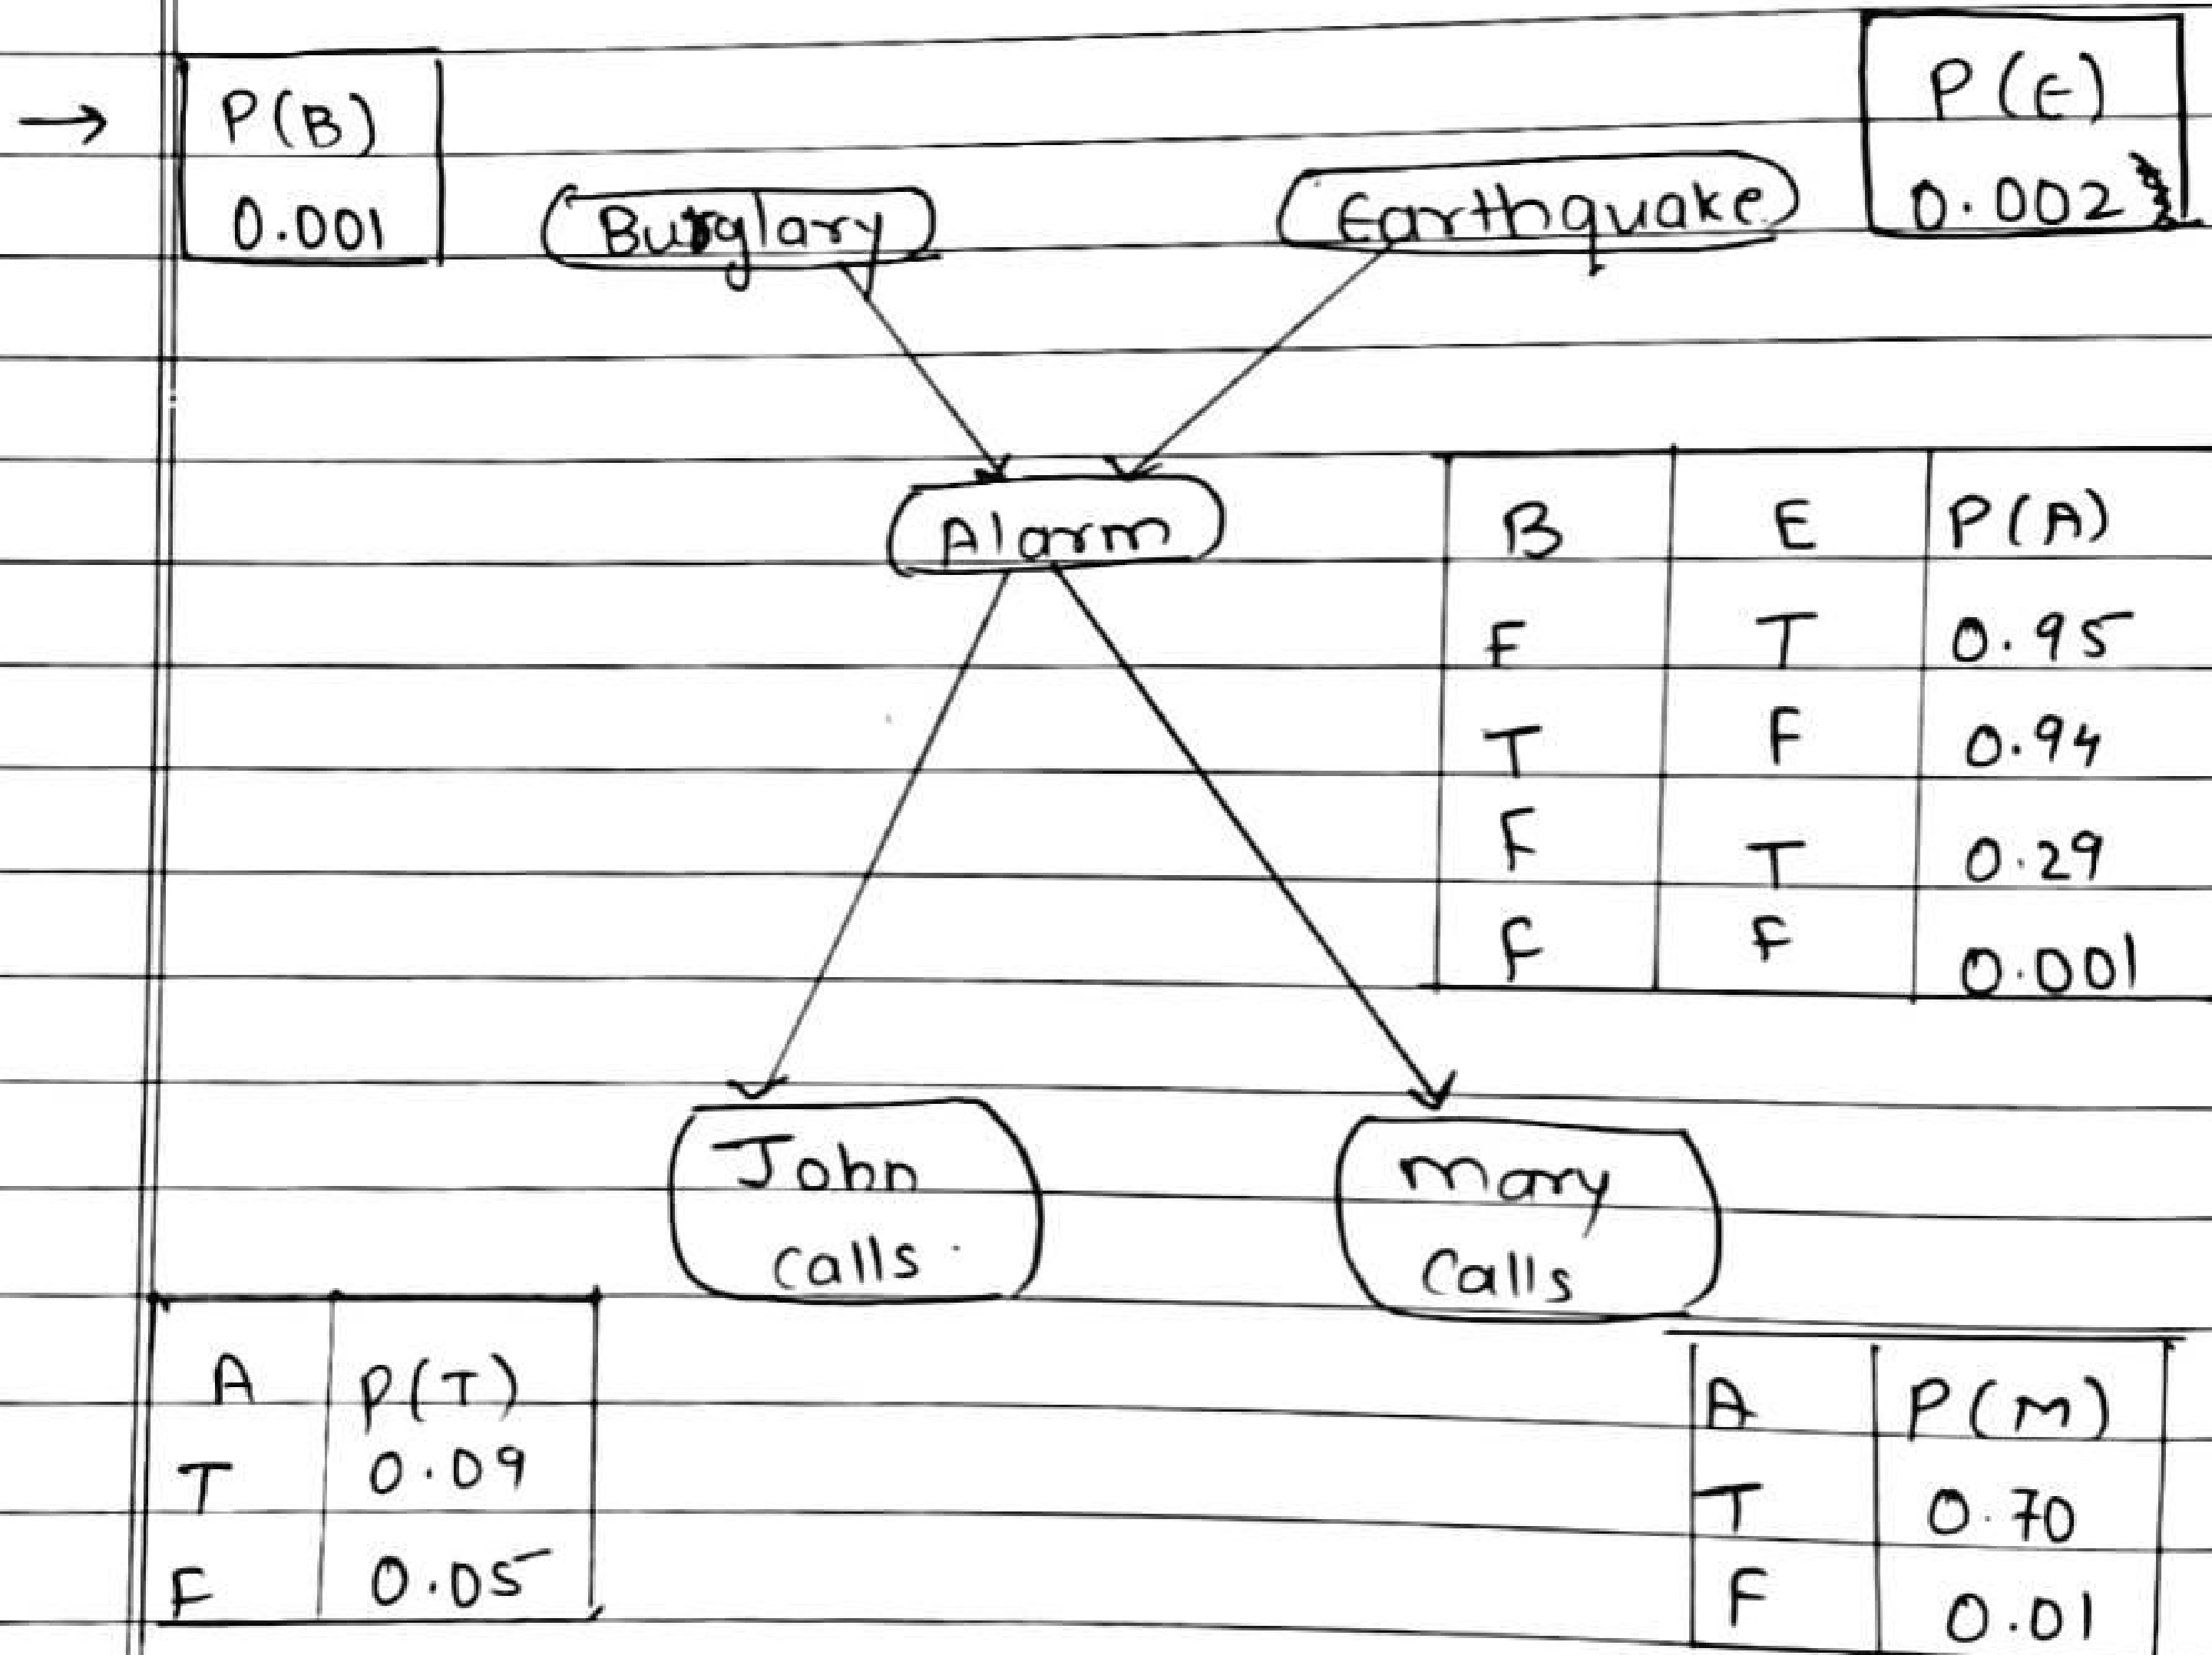 → P(B)
0.001
Burglary
Earthquake
P(E)
0.002
Alarm
B E P(A)
F T 0.95
T F 0.94
F T 0.29
F F 0.001
John
calls
Mary
Calls
A P(T)
T 0.09
F 0.05
A P(M)
T 0.70
F 0.01